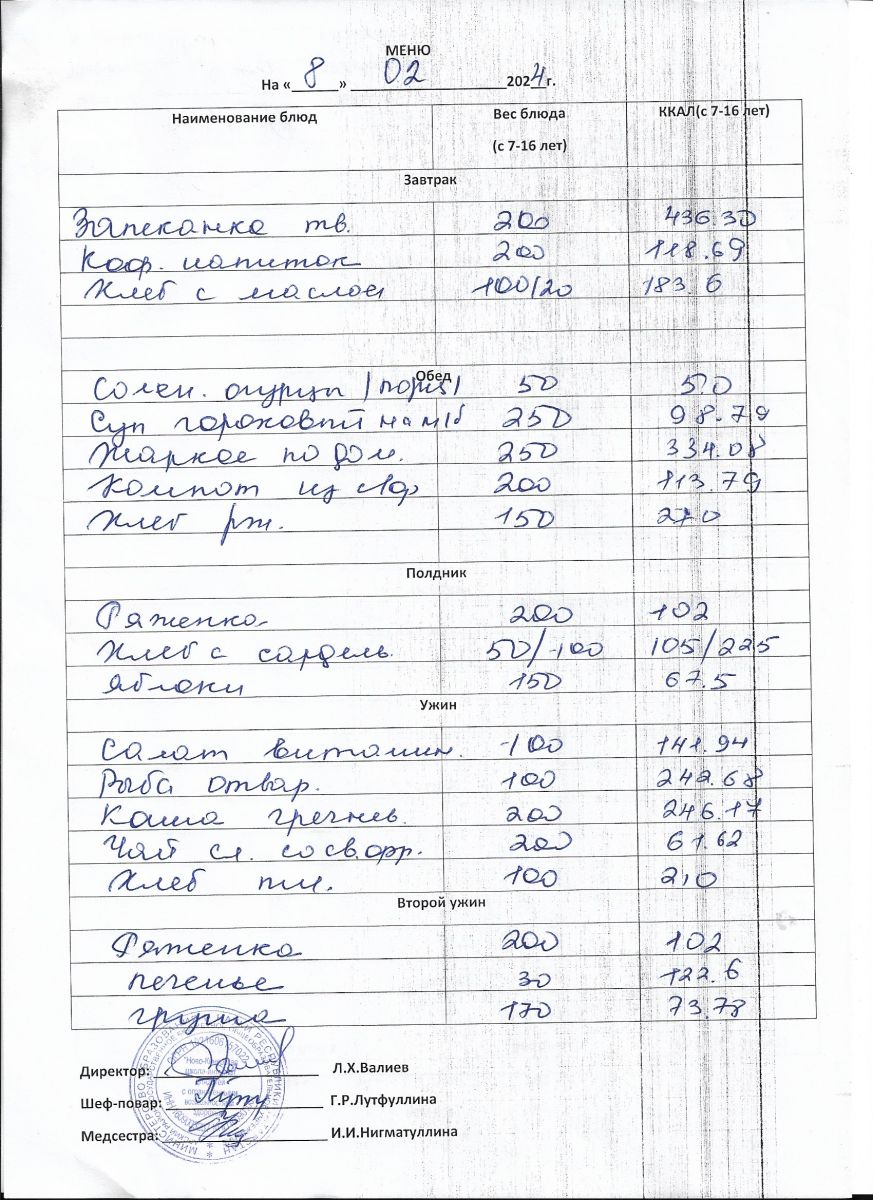 МЕНЮ
На « 8 » 02 2024 г.
Наименование блюд Вес блюда (с 7-16 лет) ККАЛ(с 7-16 лет)
Завтрак
Запеканка тв. 200 436.30
Коф. напиток 200 118.69
Хлеб с маслом 100/20 183.6
Обед
Солен. огурцы /порц/ 50 5.0
Суп гороховый на м/б 250 98.79
Жаркое по дом. 250 334.08
Компот из с/ф 200 113.79
Хлеб рж. 150 270
Полдник
Ряженка 200 102
Хлеб с сардель. 50/100 105/225
Яблоки 150 67.5
Ужин
Салат витамин. 100 141.94
Рыба отвар. 100 242.68
Каша гречнев. 200 246.17
Чай сл. со св.фр. 200 61.62
Хлеб пш. 100 210
Второй ужин
Ряженка 200 102
печенье 30 122.6
груша 170 73.78
Директор: Л.Х.Валиев
Шеф-повар: Г.Р.Лутфуллина
Медсестра: И.И.Нигматуллина